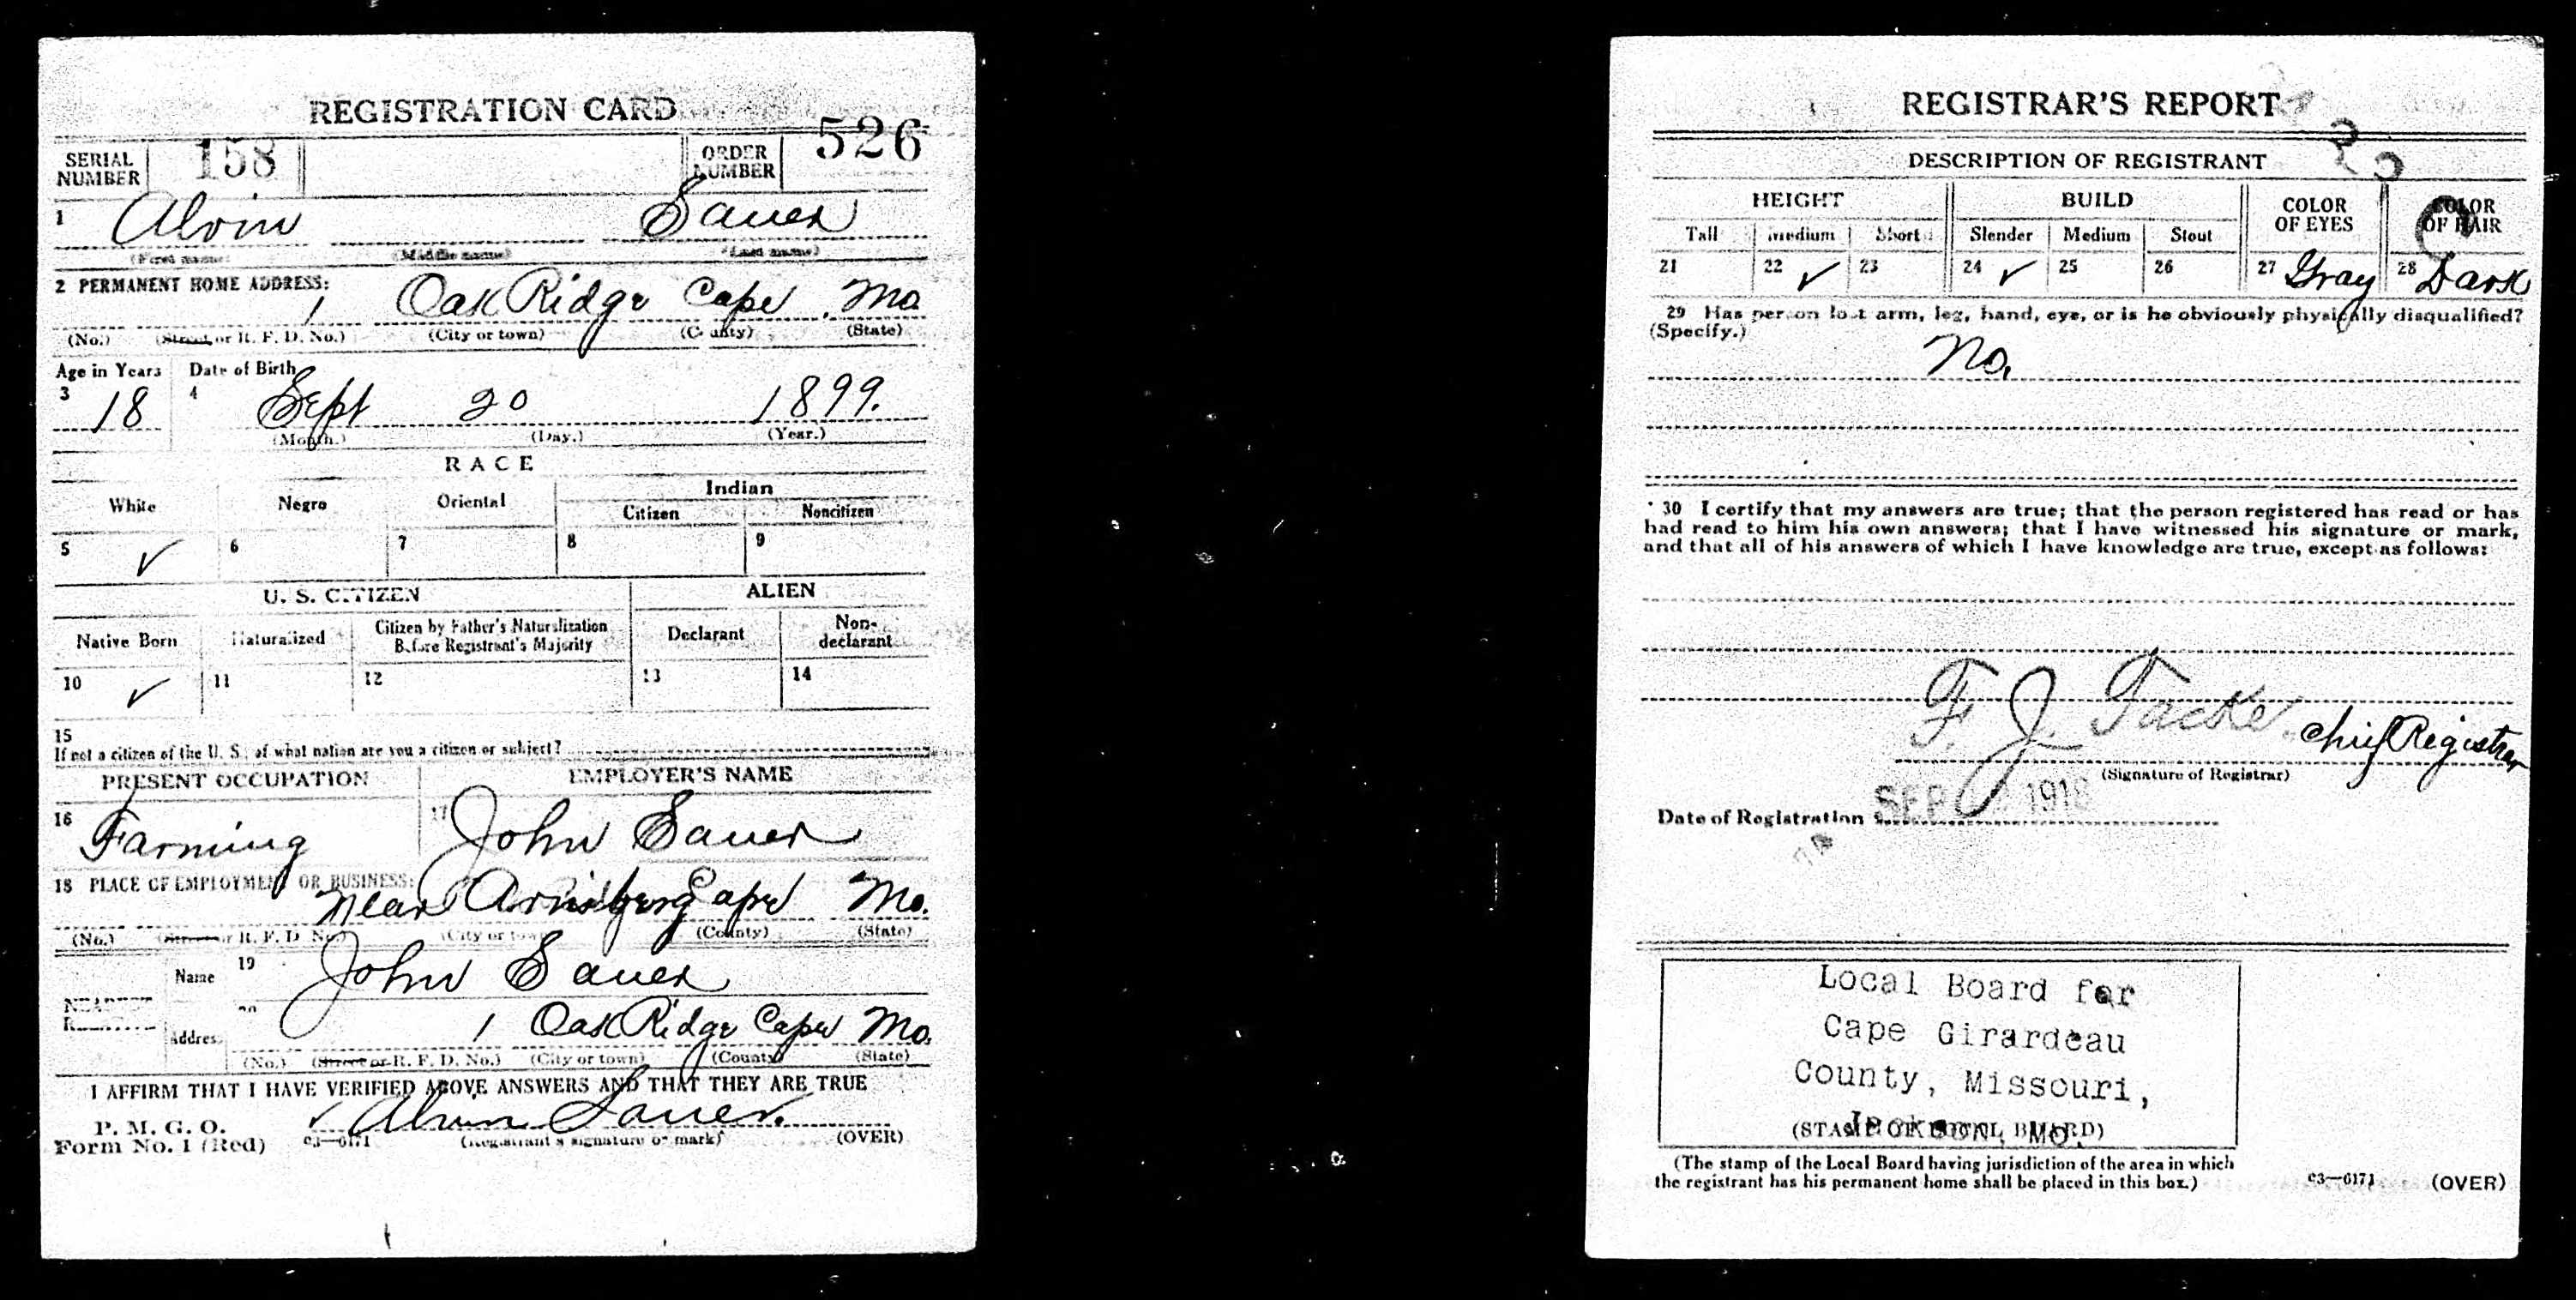 REGISTRATION CARD
SERIAL NUMBER 158 ORDER NUMBER 526
1 Alvin Sauer
(First name) (Middle name) (Last name)
2 PERMANENT HOME ADDRESS:
1 Oak Ridge Cape Mo
(No.) (Street or R. F. D. No.) (City or town) (County) (State)
Age in Years Date of Birth
3 18 4 Sept 20 1899.
(Month.) (Day.) (Year.)
RACE
White Negro Oriental Indian
Citizen Noncitizen
5 ✓ 6 7 8 9
U. S. CITIZEN ALIEN
Native Born Naturalized Citizen by Father's Naturalization Before Registrant's Majority Declarant Non-declarant
10 ✓ 11 12 13 14
15
If not a citizen of the U. S., of what nation are you a citizen or subject?
PRESENT OCCUPATION EMPLOYER'S NAME
16 Farming 17 John Sauer
18 PLACE OF EMPLOYMENT OR BUSINESS:
Near Arnsberg Cape Mo.
(No.) (Street or R. F. D. No.) (City or town) (County) (State)
Name 19 John Sauer
NEAREST RELATIVE
Address 20 1 Oak Ridge Cape Mo.
(No.) (Street or R. F. D. No.) (City or town) (County) (State)
I AFFIRM THAT I HAVE VERIFIED ABOVE ANSWERS AND THAT THEY ARE TRUE
✓ Alvin Sauer.
P. M. G. O.
Form No. 1 (Red) c3—6171 (Registrant's signature or mark) (OVER)
REGISTRAR'S REPORT
DESCRIPTION OF REGISTRANT
HEIGHT BUILD COLOR OF EYES COLOR OF HAIR
Tall Medium Short Slender Medium Stout
21 22 ✓ 23 24 ✓ 25 26 27 Gray 28 Dark
29 Has person lost arm, leg, hand, eye, or is he obviously physically disqualified?
(Specify.)
No.
30 I certify that my answers are true; that the person registered has read or has
had read to him his own answers; that I have witnessed his signature or mark,
and that all of his answers of which I have knowledge are true, except as follows:
F. J. Tacke Chief Registrar
(Signature of Registrar)
Date of Registration SEP 1918
Local Board for
Cape Girardeau
County, Missouri,
Jackson, Mo.
(STAMP OF LOCAL BOARD)
(The stamp of the Local Board having jurisdiction of the area in which
the registrant has his permanent home shall be placed in this box.)
c3—6171 (OVER)